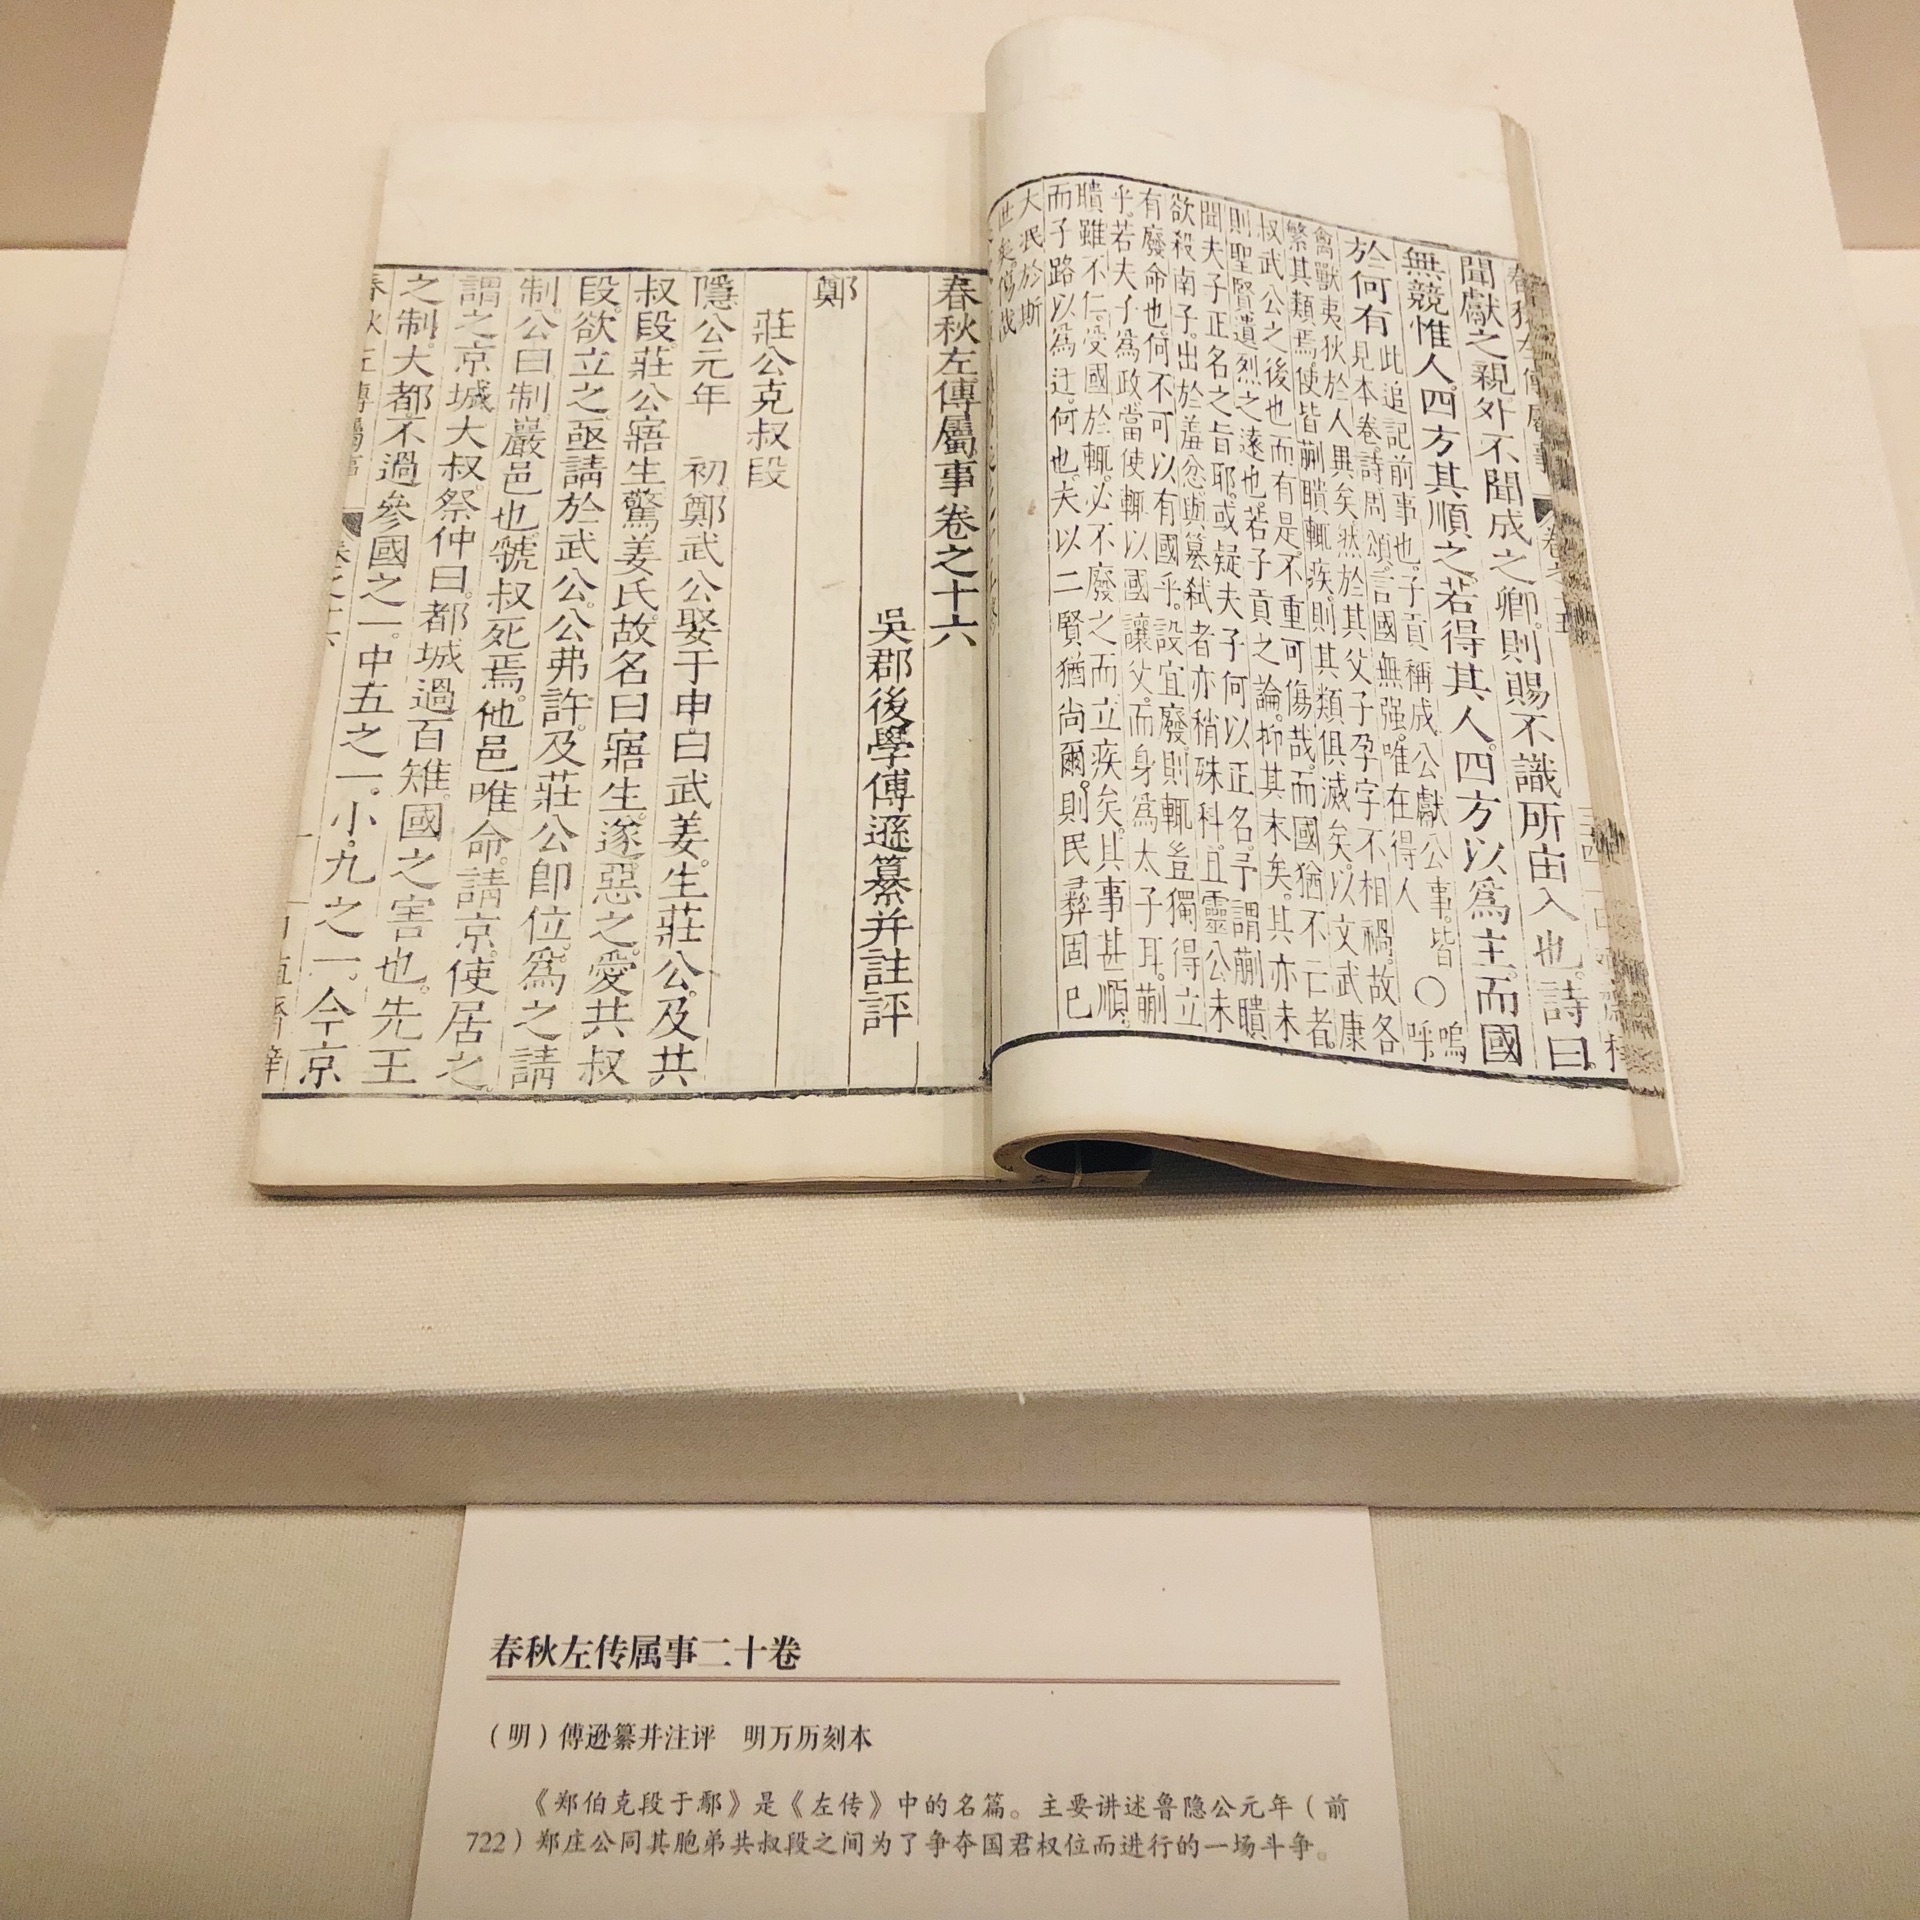 聞獻之親外不聞成之卿則賜不識所由入也詩曰
無競惟人四方其順之若得其人四方以爲主而國
於何有
此追記前事也子貢稱成公獻公事皆
見本卷詩周頌言國無强唯在得人
〇嗚呼
禽獸夷狄於人異矣然於其父子孕字不相禍故各
繁其類焉使皆蒯聵輒疾則其類俱滅矣以文武康
叔武公之後也而有是不重可傷哉而國猶不亡者
則聖賢遺烈之遠也若子貢之論抑其末矣其亦未
聞夫子正名之旨耶或疑夫子何以正名予謂蒯聵
欲殺南子出於羞忿與簒弑者亦稍殊科且靈公未
有廢命也何不可以有國乎設宜廢則輒豈獨得立
乎若夫子爲政當使輒以國讓父而身爲太子耳蒯
聵雖不仁受國於輒必不廢之而立疾矣其事甚順
而子路以爲迂何也夫以二賢猶尚爾則民彛固已
大泯於斯
世矣傷哉
春秋左傳屬事卷之十六
吳郡後學傅遜纂并註評
鄭
莊公克叔段
隱公元年 初鄭武公娶于申曰武姜生莊公及共
叔段莊公寤生驚姜氏故名曰寤生遂惡之愛共叔
段欲立之亟請於武公公弗許及莊公卽位爲之請
制公曰制巖邑也虢叔死焉他邑唯命請京使居之
謂之京城大叔祭仲曰都城過百雉國之害也先王
之制大都不過參國之一中五之一小九之一今京
春秋左傳屬事 卷之十六
春秋左传属事二十卷
（明）傅逊纂并注评 明万历刻本
《郑伯克段于鄢》是《左传》中的名篇。主要讲述鲁隐公元年（前
722）郑庄公同其胞弟共叔段之间为了争夺国君权位而进行的一场斗争。